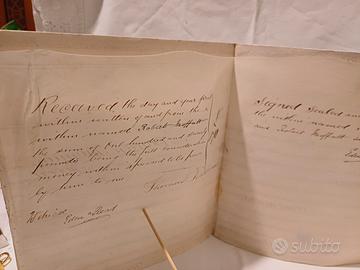 Received the day and year first
within written of and from the
within named Robert Moffatt
the sum of One hundred and
pounds being the full consideration
money within expressed to be paid
by him to me
Thomas
Witness
Signed Sealed and
the within named
and Robert Moffatt
subito